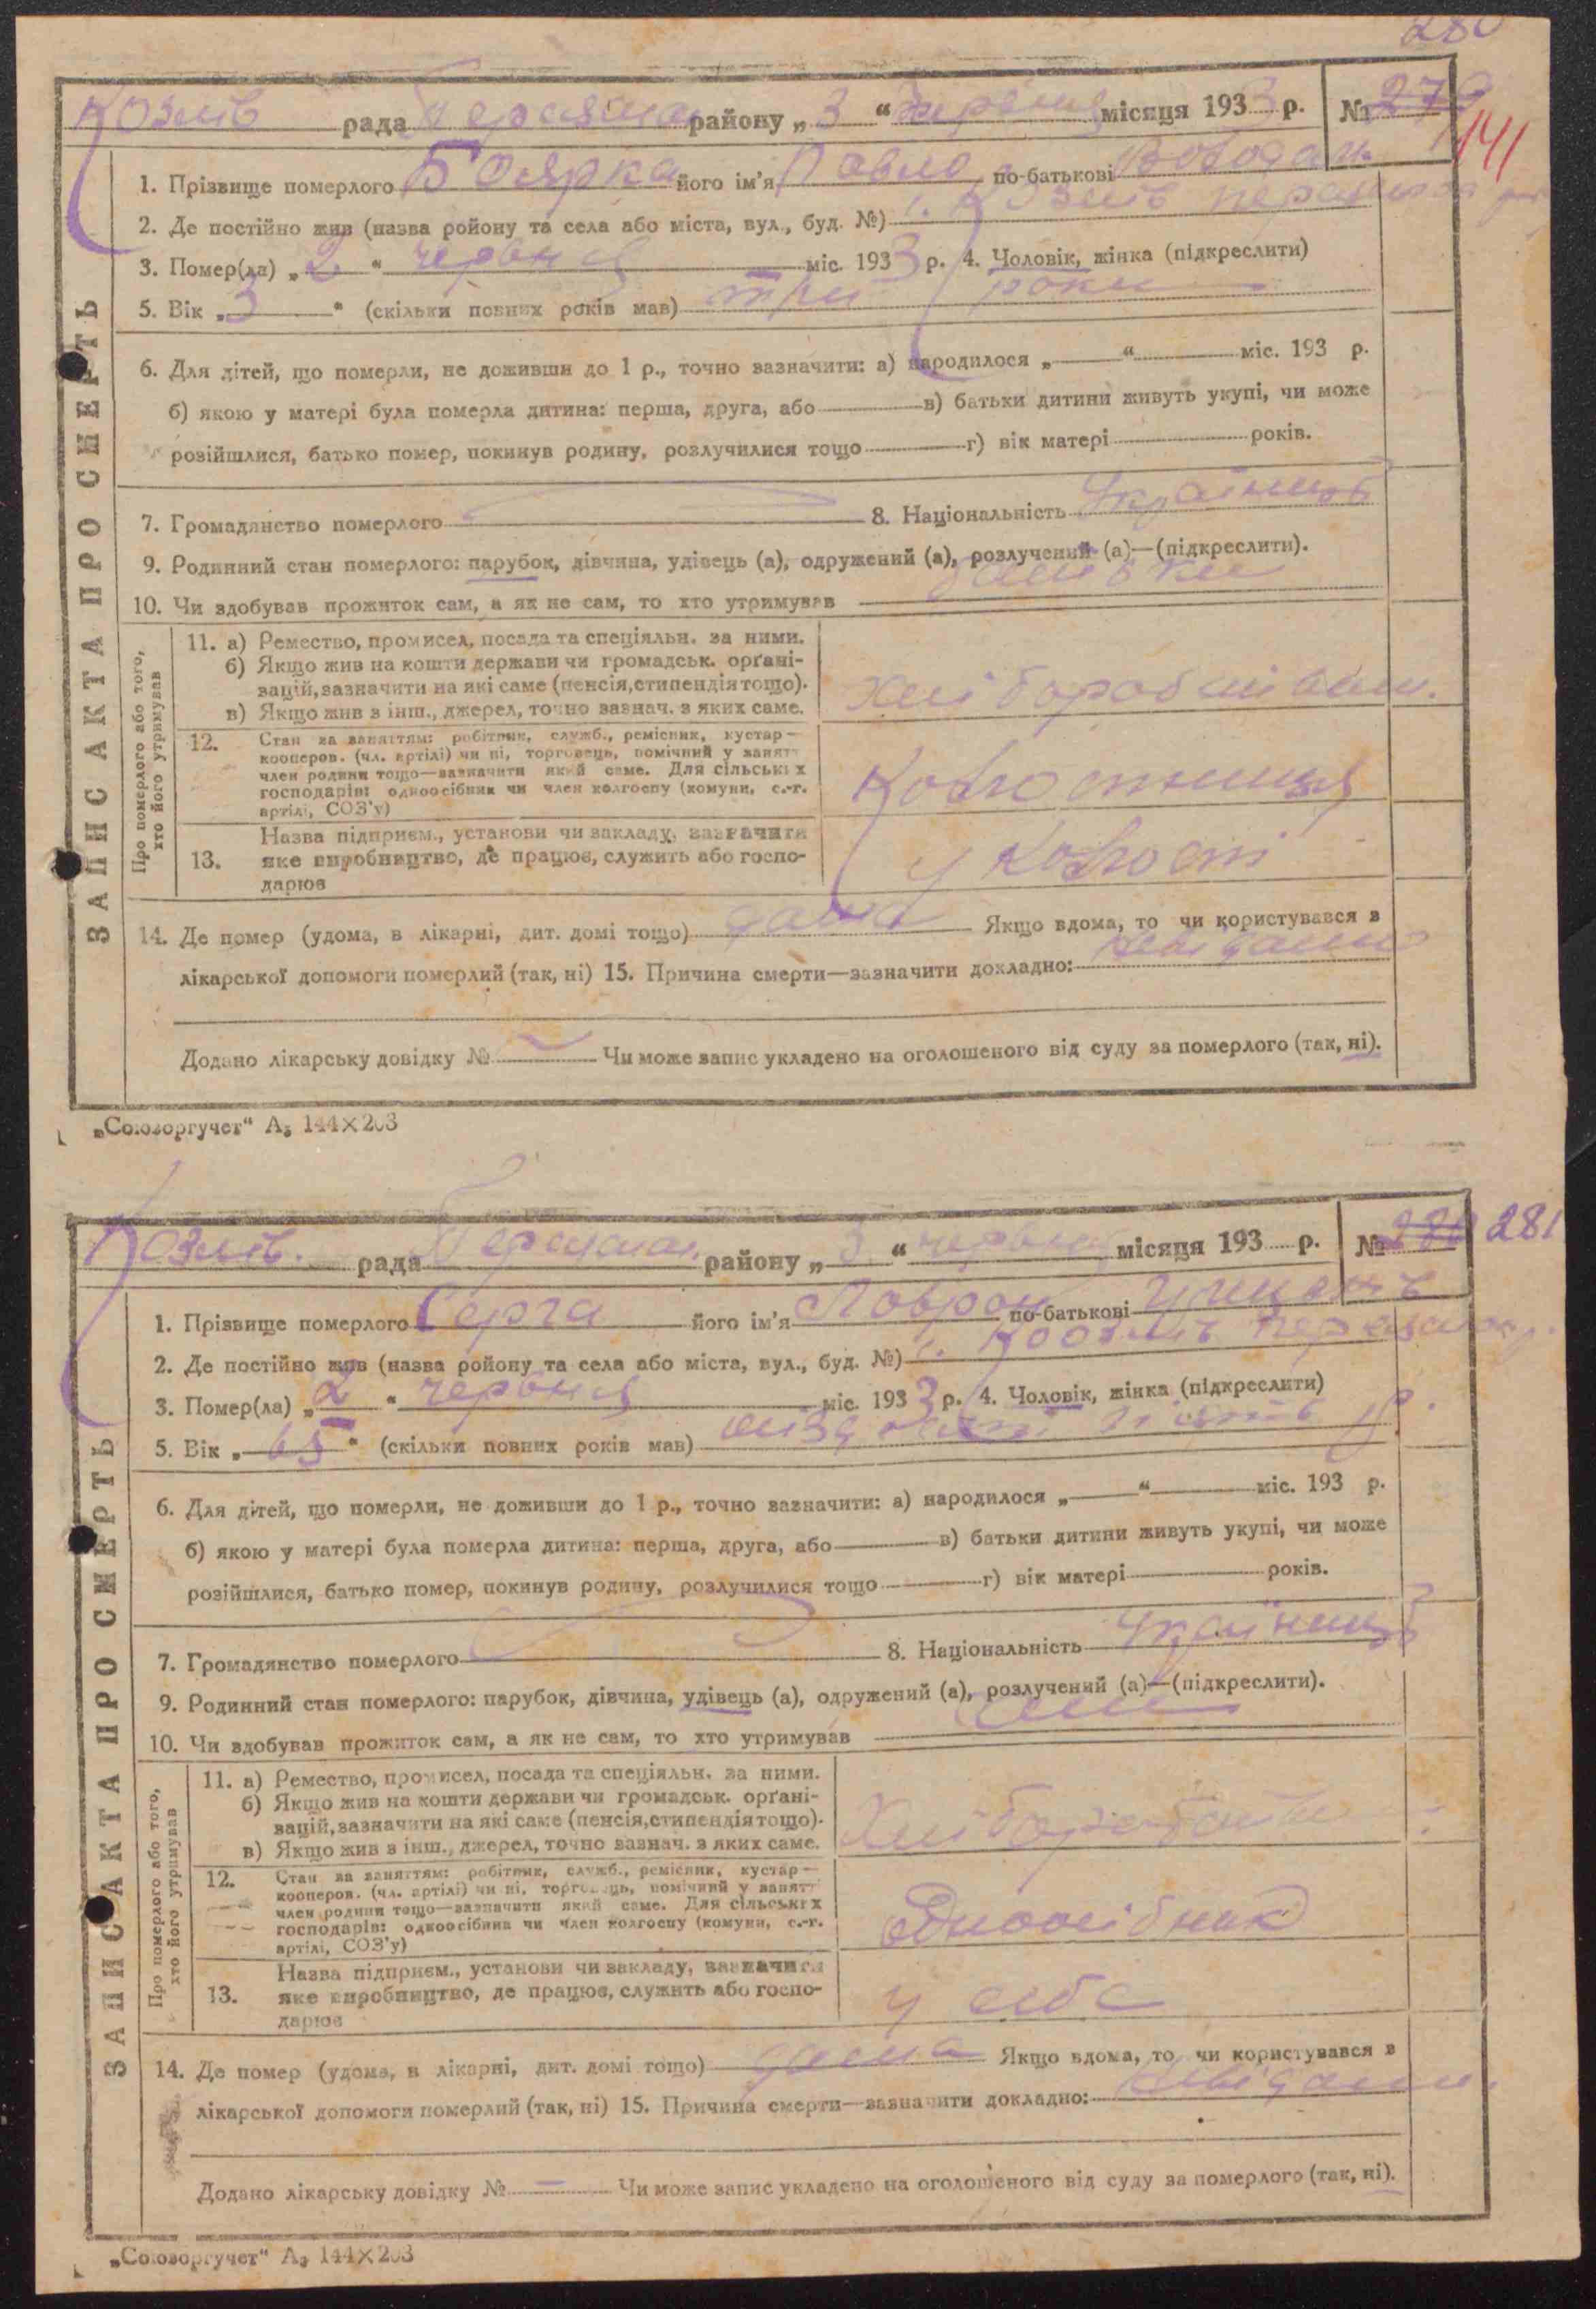 280
Козлів рада Переяслав району „3“ червня місяця 1933 р. № 279
141
1. Прізвище померлого Боярка його ім'я Павло по-батькові
2. Де постійно жив (назва ройону та села або міста, вул., буд. №) с. Козлів
3. Помер(ла) „2“ червня міс. 1933 р. 4. Чоловік, жінка (підкреслити)
5. Вік „3“ (скільки повних років мав) три роки
6. Для дітей, що померли, не доживши до 1 р., точно зазначити: а) народилося „ “ міс. 193 р.
б) якою у матері була померла дитина: перша, друга, або в) батьки дитини живуть укупі, чи може
розійшлися, батько помер, покинув родину, розлучилися тощо г) вік матері років.
7. Громадянство померлого 8. Національність Українець
9. Родинний стан померлого: парубок, дівчина, удівець (а), одружений (а), розлучений (а)—(підкреслити).
10. Чи здобував прожиток сам, а як не сам, то хто утримував батьки
ЗАПИС АКТА ПРО СМЕРТЬ
Про померлого або того, хто його утримував
11. а) Ремество, промисел, посада та спеціяльн. за ними.
б) Якщо жив на кошти держави чи громадськ. орґані-
зацій, зазначити на які саме (пенсія, стипендія тощо).
в) Якщо жив з інш., джерел, точно зазнач. з яких саме.
12. Стан за заняттям: робітник, служб., ремісник, кустар—
кооперов. (чл. артілі) чи ні, торговець, помічний у занятт
член родини тощо—зазначити який саме. Для сільських
господарів: одноосібник чи член колгоспу (комуни, с.-г.
артілі, СОЗ'у)
13. Назва підприєм., установи чи закладу, зазначити
яке виробництво, де працює, служить або госпо-
дарює
у колгоспі
14. Де помер (удома, в лікарні, дит. домі тощо) дома Якщо вдома, то чи користувався з
лікарської допомоги померлий (так, ні) 15. Причина смерти—зазначити докладно: невідомо
Додано лікарську довідку № Чи може запис укладено на оголошеного від суду за померлого (так, ні).
„Союзоргучет“ А₅ 144×203
Козлів. рада Переяслав. району „3“ червня місяця 193 р. № 280 281
1. Прізвище померлого Серга його ім'я Лаврон по-батькові
2. Де постійно жив (назва ройону та села або міста, вул., буд. №) с. Козлів
3. Помер(ла) „2“ червня міс. 1933 р. 4. Чоловік, жінка (підкреслити)
5. Вік „65“ (скільки повних років мав) шіздесят пять р.
6. Для дітей, що померли, не доживши до 1 р., точно зазначити: а) народилося „ “ міс. 193 р.
б) якою у матері була померла дитина: перша, друга, або в) батьки дитини живуть укупі, чи може
розійшлися, батько помер, покинув родину, розлучилися тощо г) вік матері років.
7. Громадянство померлого 8. Національність Українець
9. Родинний стан померлого: парубок, дівчина, удівець (а), одружений (а), розлучений (а)—(підкреслити).
10. Чи здобував прожиток сам, а як не сам, то хто утримував сам
ЗАПИС АКТА ПРО СМЕРТЬ
Про померлого або того, хто його утримував
11. а) Ремество, промисел, посада та спеціяльн. за ними.
б) Якщо жив на кошти держави чи громадськ. орґані-
зацій, зазначити на які саме (пенсія, стипендія тощо).
в) Якщо жив з інш., джерел, точно зазнач. з яких саме.
12. Стан за заняттям: робітник, служб., ремісник, кустар—
кооперов. (чл. артілі) чи ні, торговець, помічний у занятт
член родини тощо—зазначити який саме. Для сільських
господарів: одноосібник чи член колгоспу (комуни, с.-г.
артілі, СОЗ'у)
Одноосібник
13. Назва підприєм., установи чи закладу, зазначити
яке виробництво, де працює, служить або госпо-
дарює
у себе
14. Де помер (удома, в лікарні, дит. домі тощо) дома Якщо вдома, то чи користувався з
лікарської допомоги померлий (так, ні) 15. Причина смерти—зазначити докладно: невідомо
Додано лікарську довідку № — Чи може запис укладено на оголошеного від суду за померлого (так, ні).
„Союзоргучет“ А₅ 144×203